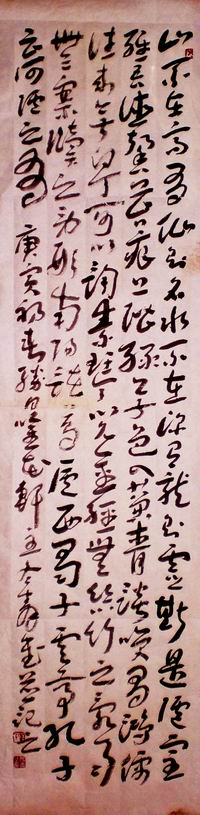 山不在高有仙則名水不在深有龍則靈斯是陋室
惟吾德馨苔痕上階綠草色入簾青談笑有鴻儒
往來無白丁可以調素琴閱金經無絲竹之亂耳
無案牘之勞形南陽諸葛廬西蜀子雲亭孔子
云何陋之有 庚寅初春 軒主 記之